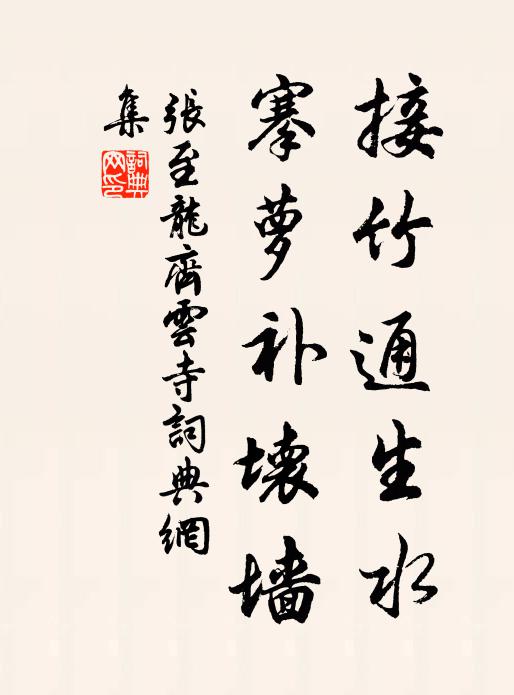 接竹通生水
搴萝补坏墙
張至龍齊雲寺詞典網
集
詞典
网印